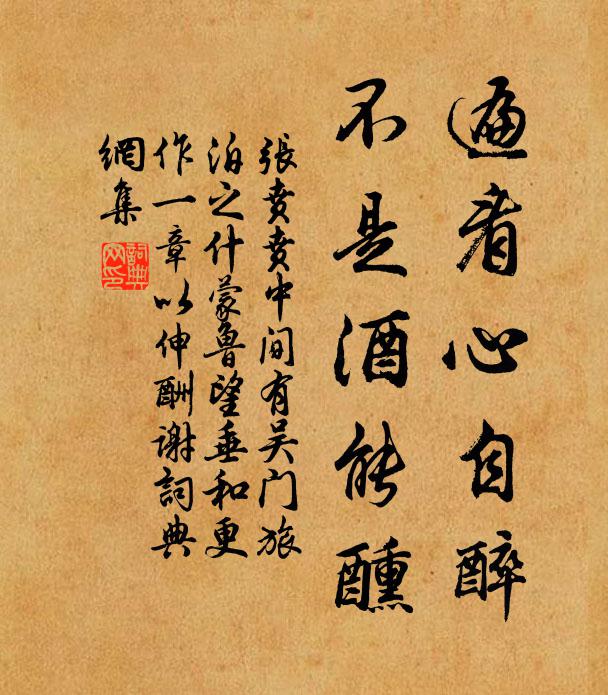 遍看心自醉
不是酒能醺
張賁賁中间有吴门旅
泊之什蒙魯望垂和更
作一章以伸酬谢詞典
網集
詞典
网印